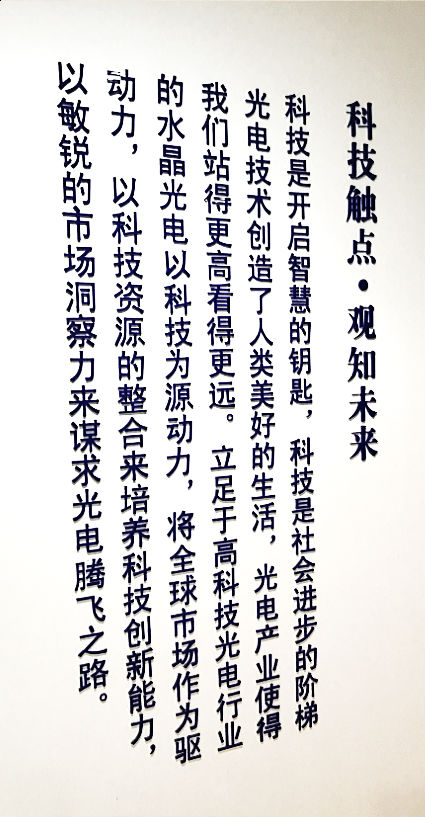 科技触点·观知未来
科技是开启智慧的钥匙，科技是社会进步的阶梯
光电技术创造了人类美好的生活，光电产业使得
我们站得更高看得更远。立足于高科技光电行业
的水晶光电以科技为源动力，将全球市场作为驱
动力，以科技资源的整合来培养科技创新能力，
以敏锐的市场洞察力来谋求光电腾飞之路。